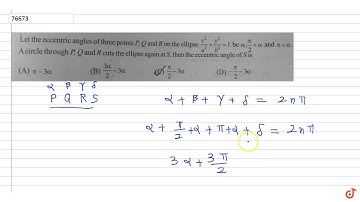 76673
Let the eccentric angles of three points P, Q and R on the ellipse x²/a² + y²/b² = 1 be α, π/2 + α and π + α.
A circle through P, Q and R cuts the ellipse again at S, then the eccentric angle of S is
(A) π − 3α (B) 3α/2 − 3α (C) π/2 − 3α (D) π/2 − 3α
α β γ δ
P Q R S
α + β + γ + δ = 2nπ
α + π/2 + α + π + α + δ = 2nπ
3α + 3π/2